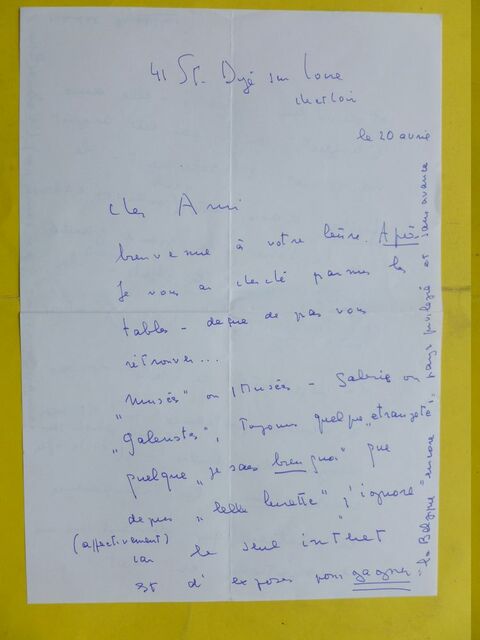 41 St. Dyé sur Loire
le 20 avril
Cher Ami
bienvenue à votre lettre. Après
Je vous ai cherché parmi les
tables - de pas vous
rétrouver...
"Musées" ou Musées - Galerie ou
"Galeristes", Toujours quelque "étrangeté",
quelque "je sais bien quoi" que
depuis "belle lurette" j'ignore
(affectivement)
car le seul intéret
St d'exposer pour gagner
"la Belgique "encore", pays privilégié et sans avance